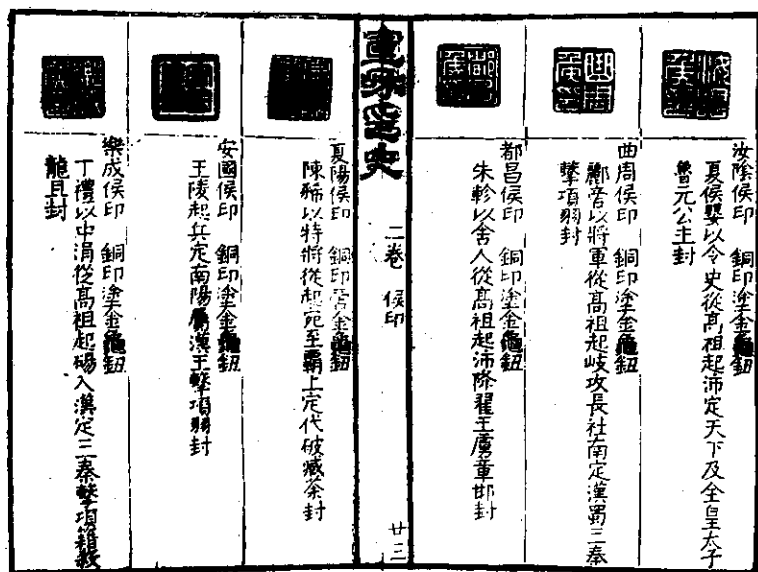 汝陰侯印 銅印塗金龜鈕
夏侯嬰以令史從高祖起沛定天下及全皇太子
魯元公主封
曲周侯印 銅印塗金龜鈕
酈音以將軍從高祖起岐攻長社南定漢蜀三秦
擊項羽封
都昌侯印 銅印塗金龜鈕
朱軫以舍人從高祖起沛降翟王虜章邯封
宣和印史
二卷 侯印
廿三
夏陽侯印 銅印塗金龜鈕
陳豨以特將從起宛至霸上定代破臧荼封
安國侯印 銅印塗金龜鈕
王陵起兵定南陽屬漢王擊項羽封
樂成侯印 銅印塗金龜鈕
丁禮以中涓從高祖起碭入漢定三秦擊項籍殺
龍且封